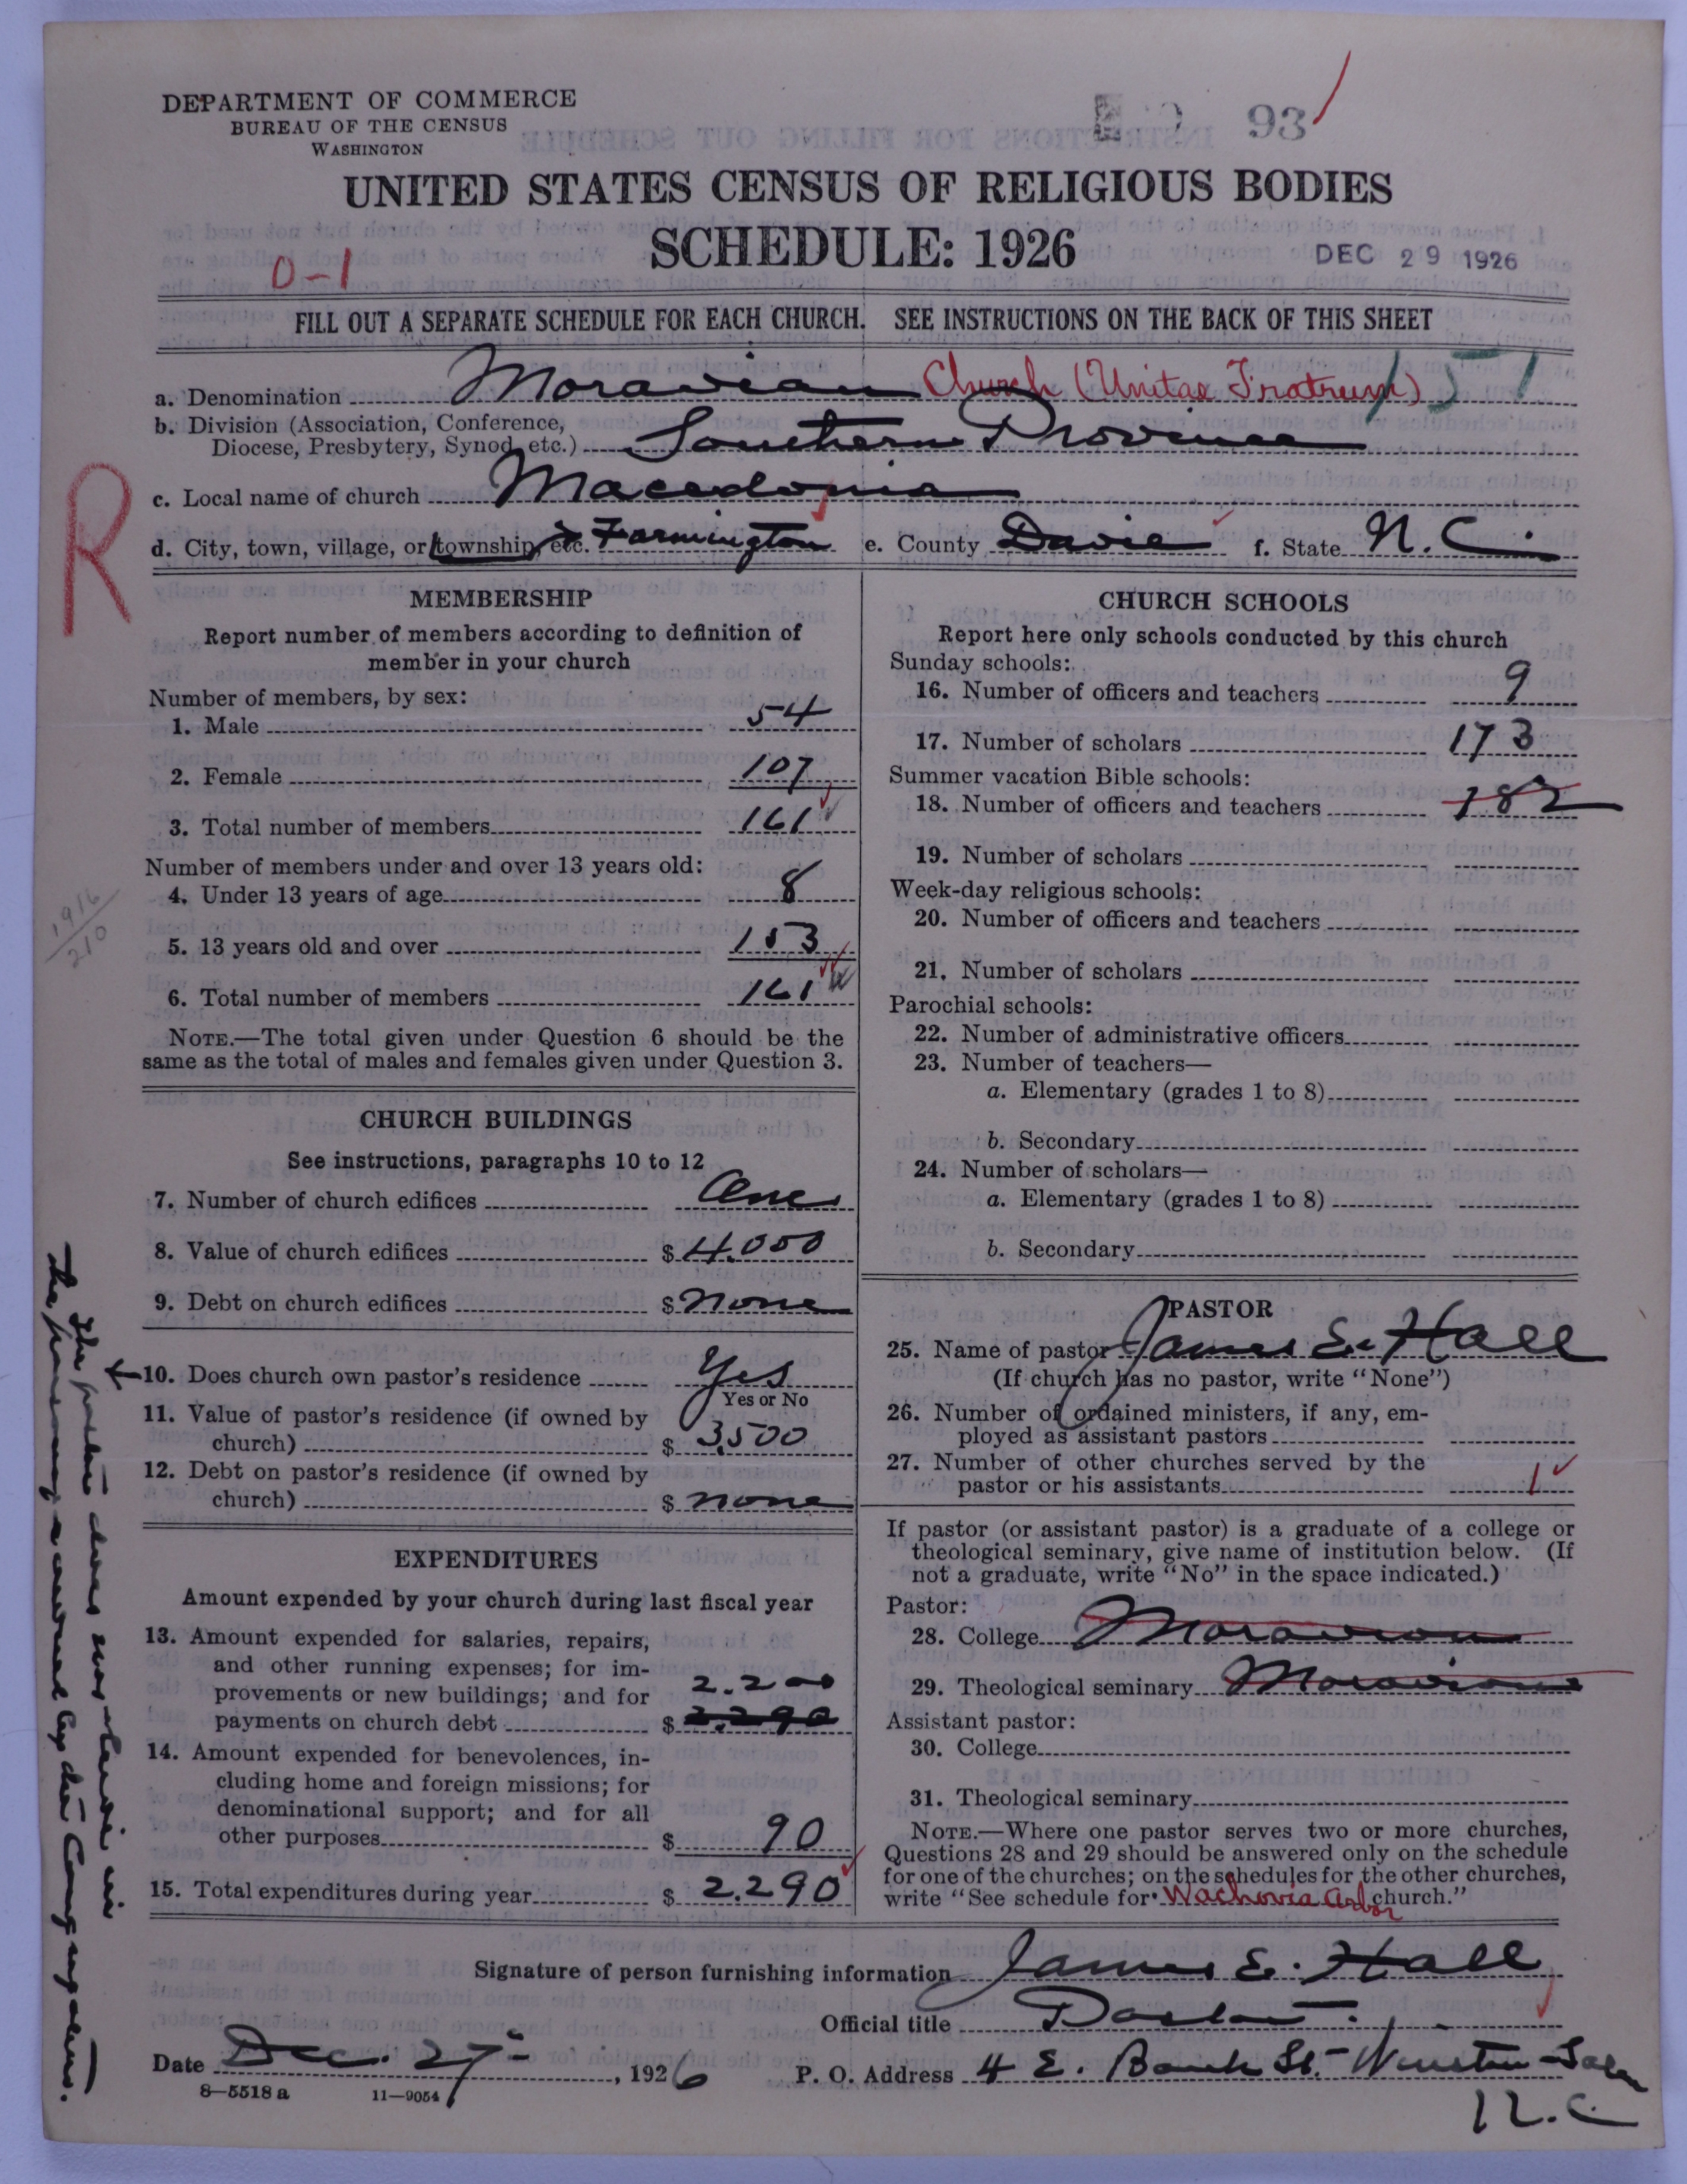 DEPARTMENT OF COMMERCE
BUREAU OF THE CENSUS
WASHINGTON
93
UNITED STATES CENSUS OF RELIGIOUS BODIES
SCHEDULE: 1926
DEC 29 1926
0-1
FILL OUT A SEPARATE SCHEDULE FOR EACH CHURCH. SEE INSTRUCTIONS ON THE BACK OF THIS SHEET
a. Denomination Moravian Church (Unitas Fratrum) 151
b. Division (Association, Conference,
Diocese, Presbytery, Synod, etc.) Southern Province
R
c. Local name of church Macedonia
d. City, town, village, or township, etc. Farmington e. County Davie f. State N.C.
MEMBERSHIP
Report number of members according to definition of
member in your church
Number of members, by sex:
1. Male 54
2. Female 107
3. Total number of members 161
Number of members under and over 13 years old:
4. Under 13 years of age 8
1916
210
5. 13 years old and over 153
6. Total number of members 161
NOTE.—The total given under Question 6 should be the
same as the total of males and females given under Question 3.
CHURCH BUILDINGS
See instructions, paragraphs 10 to 12
7. Number of church edifices One
8. Value of church edifices $ 4,000
9. Debt on church edifices $ none
10. Does church own pastor's residence Yes
Yes or No
11. Value of pastor's residence (if owned by
church) $ 3,500
12. Debt on pastor's residence (if owned by
church) $ none
The pastor does not reside in
the parsonage owned by the Congregation.
EXPENDITURES
Amount expended by your church during last fiscal year
13. Amount expended for salaries, repairs,
and other running expenses; for im-
provements or new buildings; and for 2.200
payments on church debt $ 2.290
14. Amount expended for benevolences, in-
cluding home and foreign missions; for
denominational support; and for all
other purposes $ 90
15. Total expenditures during year $ 2.290
CHURCH SCHOOLS
Report here only schools conducted by this church
Sunday schools:
16. Number of officers and teachers 9
17. Number of scholars 173
Summer vacation Bible schools:
18. Number of officers and teachers 182
19. Number of scholars
Week-day religious schools:
20. Number of officers and teachers
21. Number of scholars
Parochial schools:
22. Number of administrative officers
23. Number of teachers—
a. Elementary (grades 1 to 8)
b. Secondary
24. Number of scholars—
a. Elementary (grades 1 to 8)
b. Secondary
PASTOR
25. Name of pastor James E. Hall
(If church has no pastor, write "None")
26. Number of ordained ministers, if any, em-
ployed as assistant pastors
27. Number of other churches served by the
pastor or his assistants 1
If pastor (or assistant pastor) is a graduate of a college or
theological seminary, give name of institution below. (If
not a graduate, write "No" in the space indicated.)
Pastor:
28. College Moravian
29. Theological seminary Moravian
Assistant pastor:
30. College
31. Theological seminary
NOTE.—Where one pastor serves two or more churches,
Questions 28 and 29 should be answered only on the schedule
for one of the churches; on the schedules for the other churches,
write "See schedule for Wachovia Arbor church."
Signature of person furnishing information James E. Hall
Official title Pastor.
Date Dec. 27, 1926 P. O. Address 4 E. Bank St. Winston-Salem
N.C.
8-5518a 11-9054